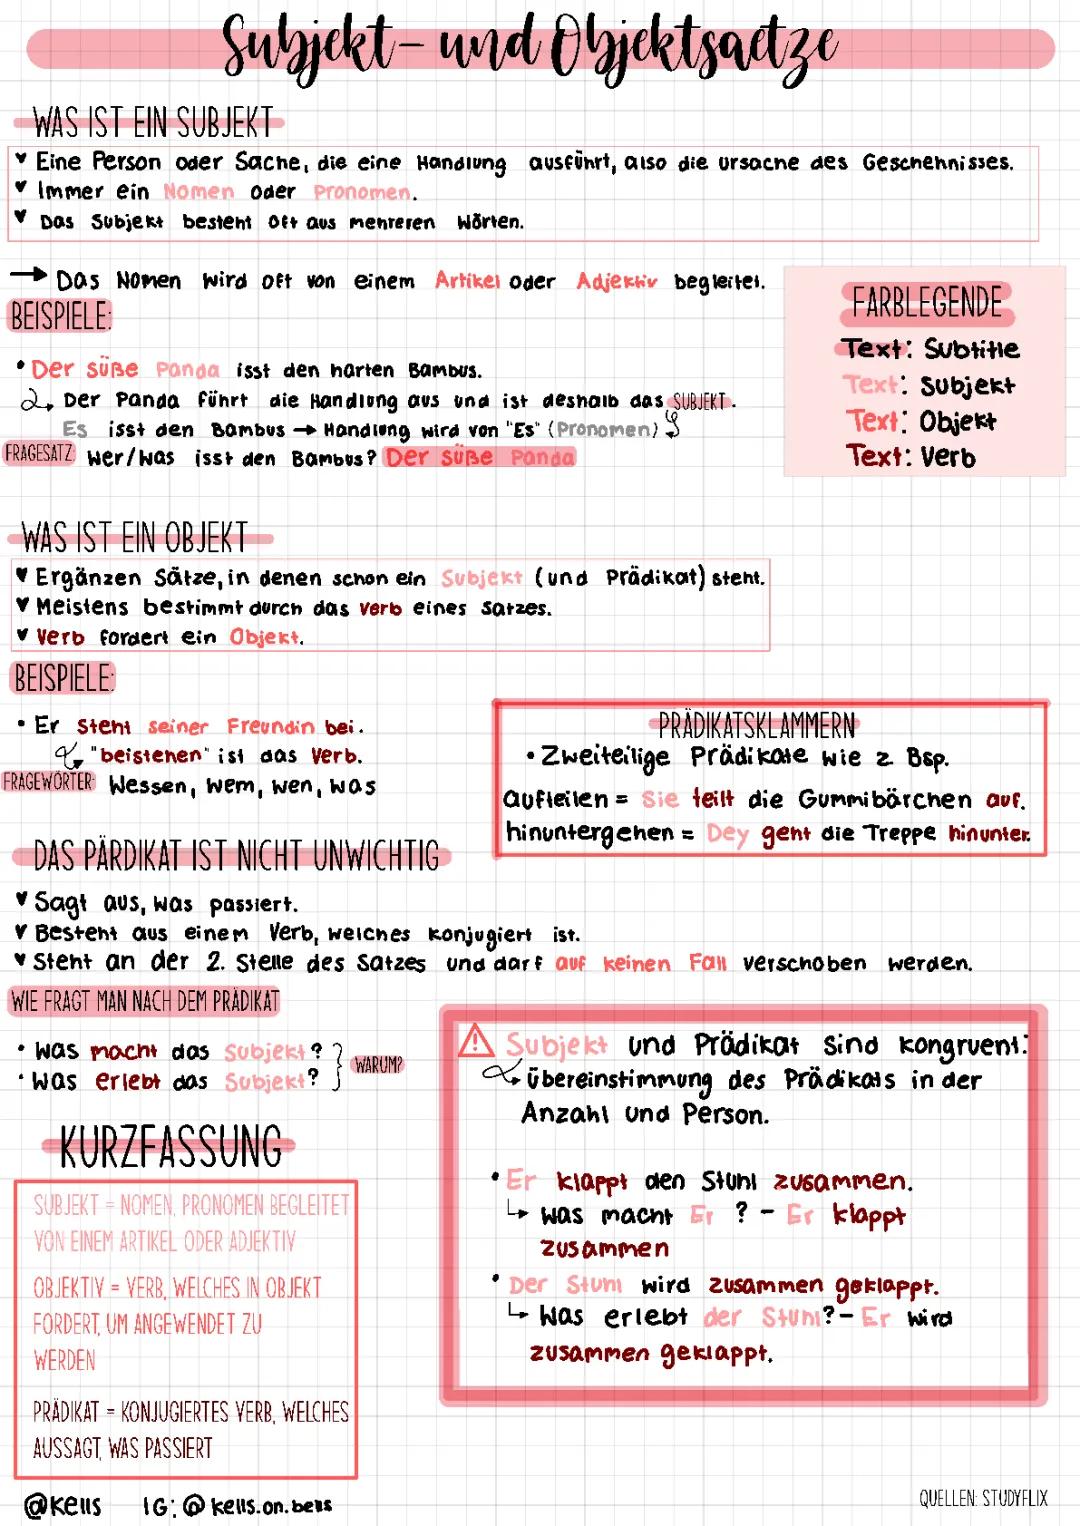 Subjekt- und Objektsaetze
WAS IST EIN SUBJEKT
Eine Person oder Sache, die eine Handlung ausführt, also die ursache des Geschehnisses.
Immer ein Nomen oder Pronomen.
Das Subjekt besteht oft aus mehreren Wörten.
→ Das Nomen wird oft von einem Artikel oder Adjektiv begleitet.
BEISPIELE:
• Der süße Panda isst den harten Bambus.
Der Panda führt die Handlung aus und ist deshalb das SUBJEKT.
Es isst den Bambus → Handlung wird von "Es" (Pronomen)
FRAGESATZ: Wer/Was isst den Bambus? Der süße Panda
FARBLEGENDE
Text: Subtitle
Text: Subjekt
Text: Objekt
Text: Verb
WAS IST EIN OBJEKT
Ergänzen Sätze, in denen schon ein Subjekt (und Prädikat) steht.
Meistens bestimmt durch das Verb eines Satzes.
Verb fordert ein Objekt.
BEISPIELE:
• Er steht seiner Freundin bei.
"beistehen" ist das Verb.
FRAGEWÖRTER: Wessen, wem, wen, was
PRÄDIKATSKLAMMERN
• Zweiteilige Prädikate wie z. Bsp.
aufteilen = Sie teilt die Gummibärchen auf.
hinuntergehen = Dey geht die Treppe hinunter.
DAS PÄRDIKAT IST NICHT UNWICHTIG
Sagt aus, was passiert.
Besteht aus einem Verb, welches konjugiert ist.
Steht an der 2. Stelle des Satzes und darf auf keinen Fall verschoben werden.
WIE FRAGT MAN NACH DEM PRÄDIKAT
• Was macht das Subjekt?
• Was erlebt das Subjekt?
WARUM?
Subjekt und Prädikat sind kongruent:
übereinstimmung des Prädikats in der
Anzahl und Person.
• Er klappt den Stuhl zusammen.
↳ Was macht Er ? - Er klappt
zusammen
• Der Stuhl wird zusammen geklappt.
↳ Was erlebt der Stuhl? - Er wird
zusammen geklappt.
KURZFASSUNG
SUBJEKT = NOMEN, PRONOMEN BEGLEITET
VON EINEM ARTIKEL ODER ADJEKTIV
OBJEKTIV = VERB, WELCHES IN OBJEKT
FORDERT, UM ANGEWENDET ZU
WERDEN
PRÄDIKAT = KONJUGIERTES VERB, WELCHES
AUSSAGT, WAS PASSIERT
@kells IG: @kells.on.bells
QUELLEN: STUDYFLIX